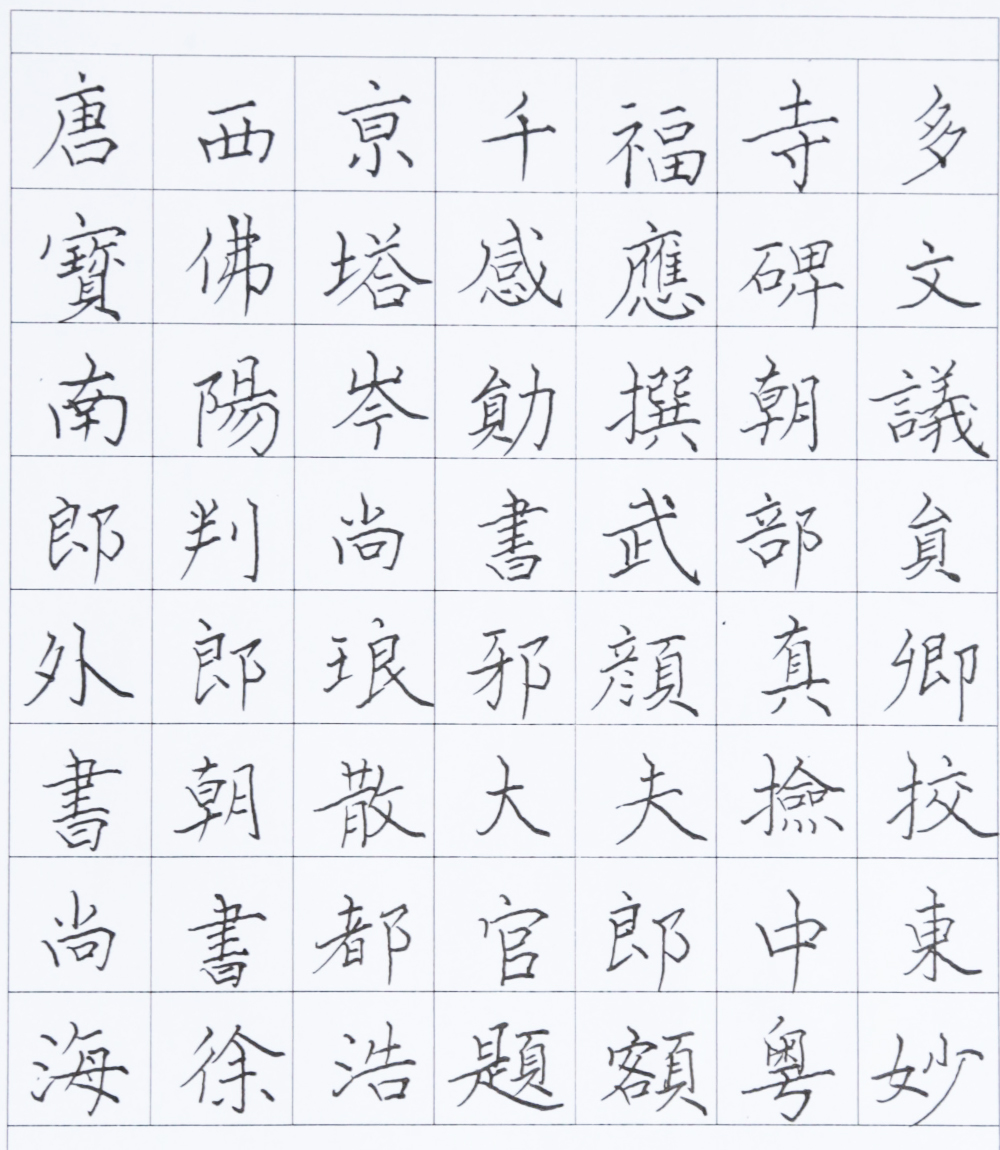 唐西京千福寺多
寶佛塔感應碑文
南陽岑勛撰朝議
郎判尚書武部員
外郎琅邪顏真卿
書朝散大夫撿挍
尚書都官郎中東
海徐浩題額粵妙